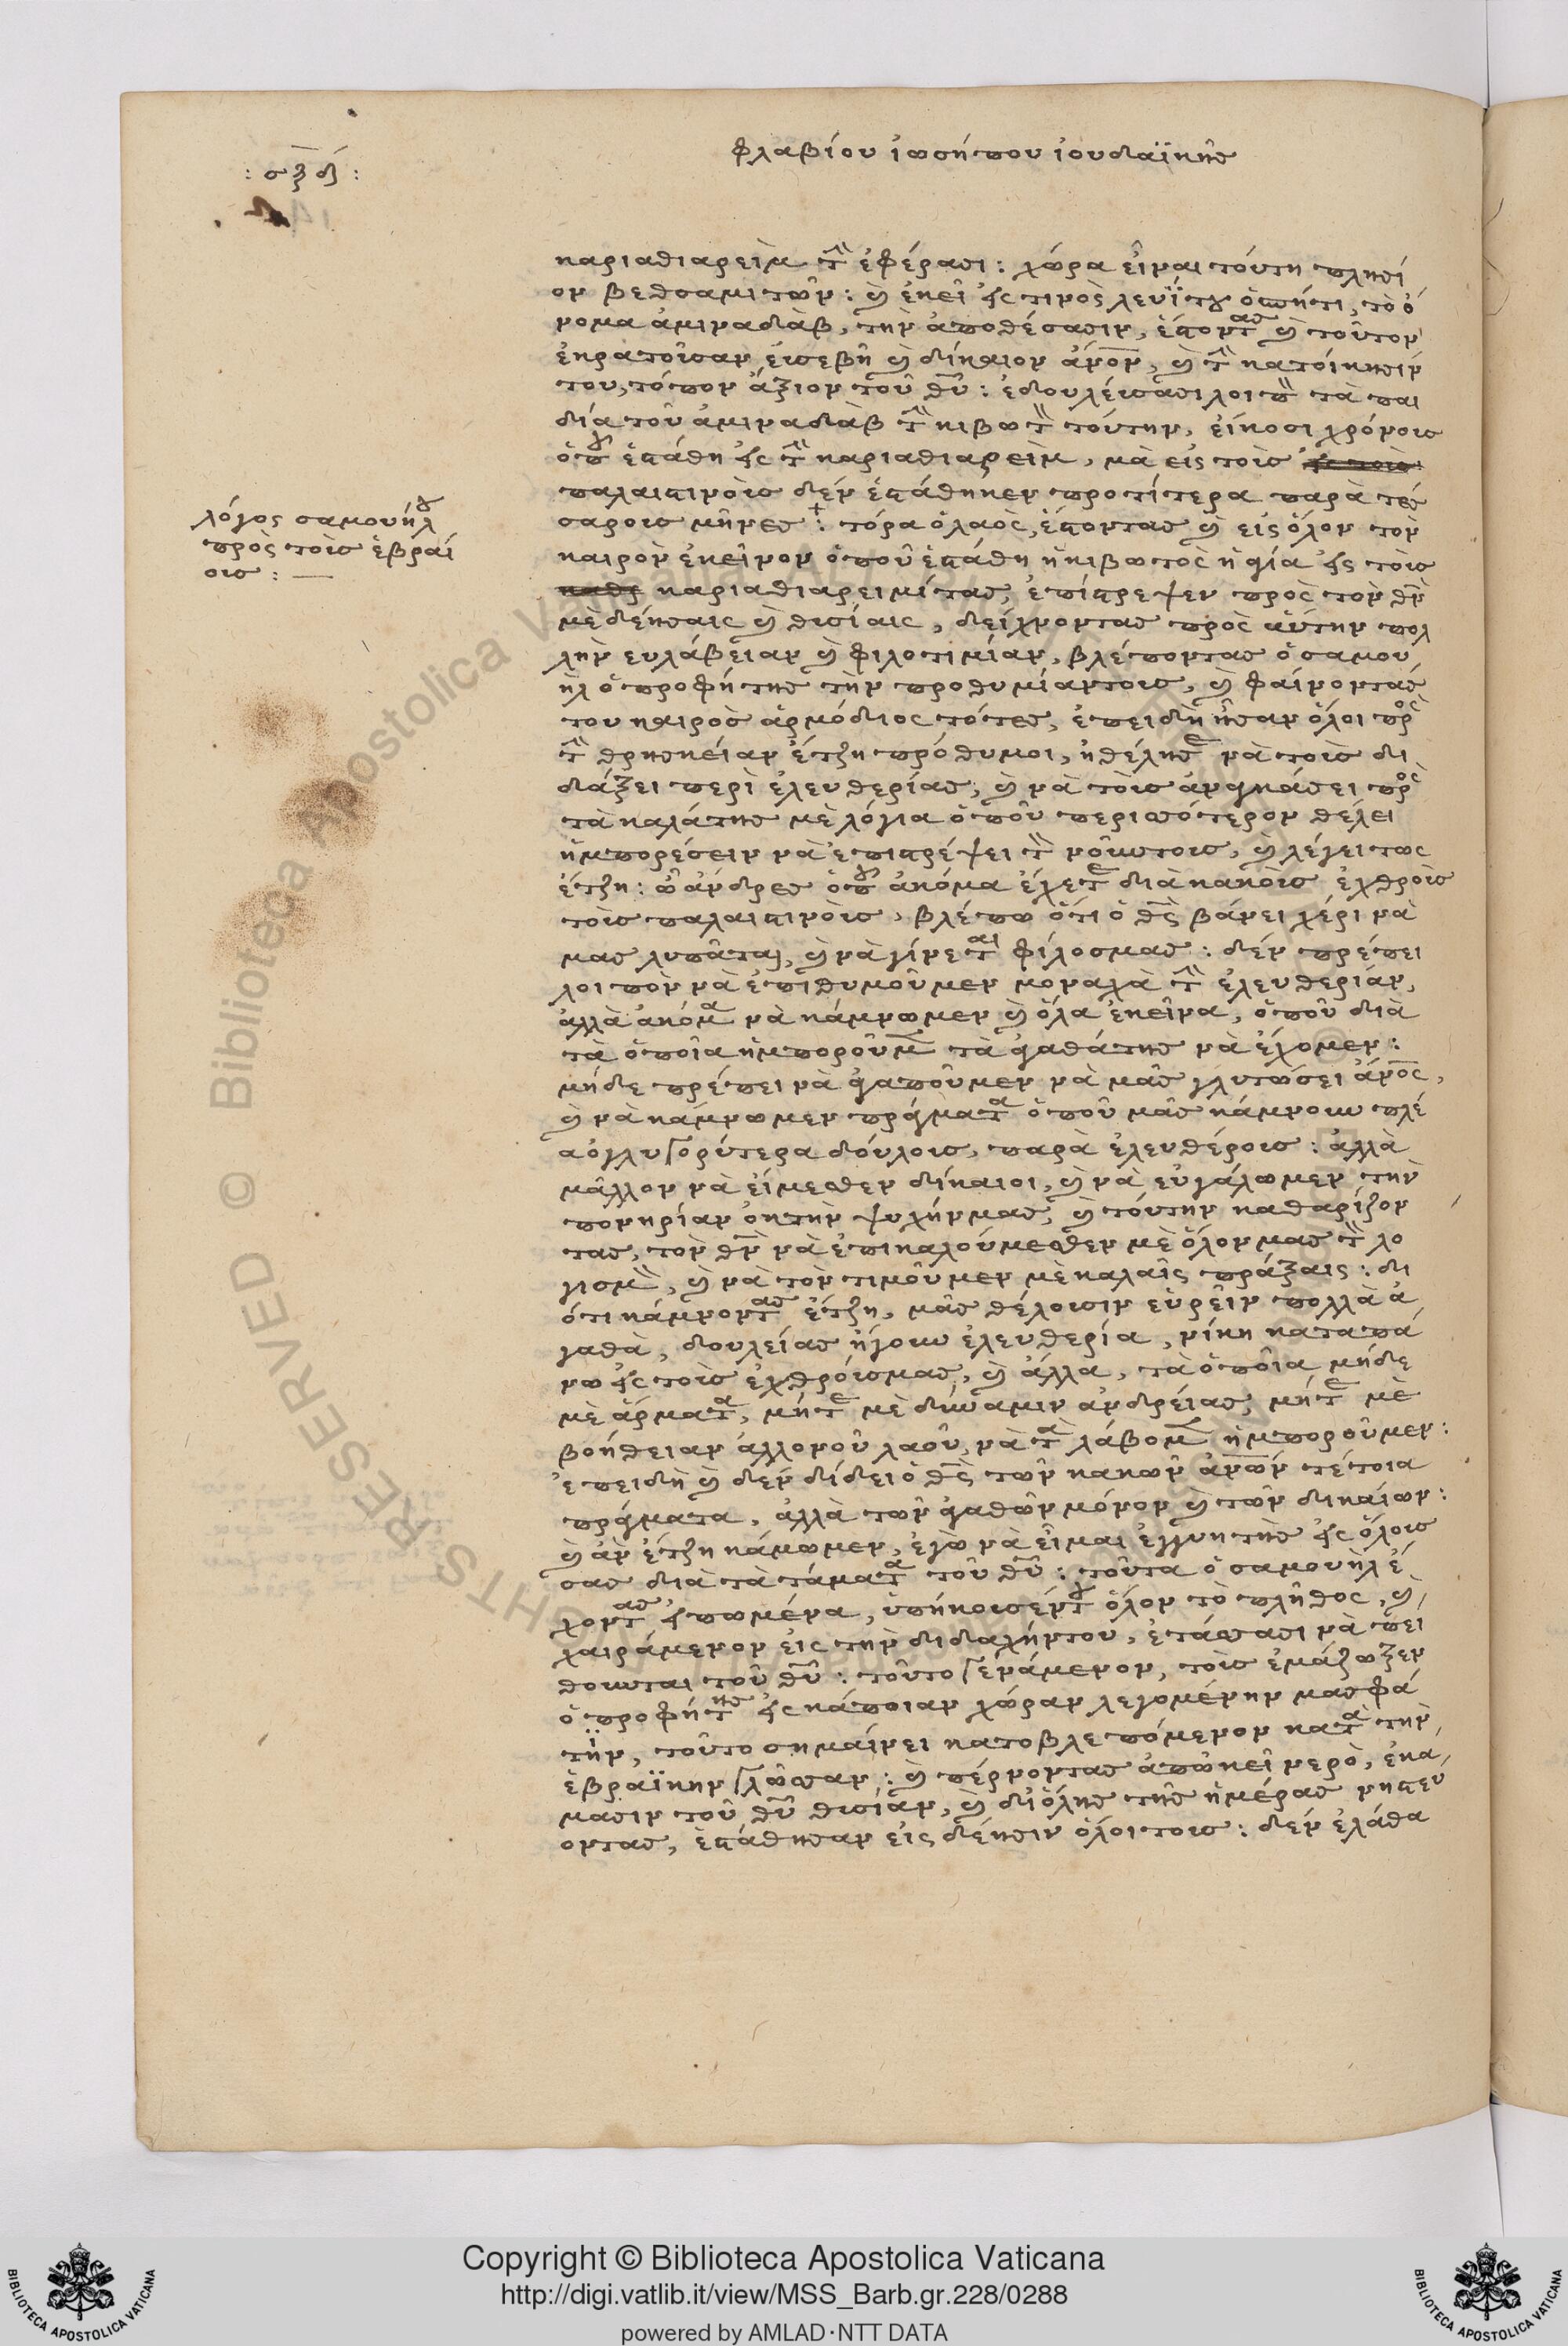 φλαβίου ἰωσήπου ἰουδαϊκῆς
: σξδ :
καριαθιαρεὶμ τὴν ἐφέρασι: χώρα εἶναι τούτη πλησί
ον βεθσαμιτῶν: καὶ ἐκεῖ εἰς τινὸς λευΐτου ὁσπήτι, τὸ ὄ
νομα ἀμιναδὰβ, τὴν ἀποθέσασιν, ἔστοντας καὶ τοῦτον
ἐκρατοῦσαν εὐσεβῆ καὶ δίκαιον ἄνον, καὶ τὴν κατοίκησίν
του, τόπον ἄξιον τοῦ θῦ: ἐδουλεύσασι λοιπὸν τὰ παι
δία τοῦ ἀμιναδὰβ τὴν κιβωτὸν τούτην, εἴκοσι χρόνους
ὁποῦ ἐστάθη εἰς τὴν καριαθιαρεὶμ, μὰ εἰς τοὺς
παλαιστινοὺς δὲν ἐστάθηκεν προτίτερα παρὰ τέσ
σαρους μῆνες: τόρα ὁ λαὸς, ἔστοντας καὶ εἰς ὅλον τὸν
λόγος σαμουήλου
πρὸς τοὺς ἑβραί
ους: —
καιρὸν ἐκεῖνον ὁποῦ ἐστάθη ἡ κιβωτὸς ἡ ἁγία εἰς τοὺς
καριαθιαρειμίτας, ἐπίστρεψεν πρὸς τὸν θν
μὲ δέησαις καὶ θυσίαις, δείχνοντας πρὸς αὐτὴν πολ
λὴν ευλάβειαν καὶ φιλοτιμίαν, βλέποντας ὁ σαμου
ὴλ ὁ προφήτης τὴν προθυμίαν τους, καὶ φαίνοντάς
του καιρὸς ἁρμόδιος τότες, ἐπειδὴ ἦσαν ὅλοι πρὸς
τὴν θρησκείαν ἔτζη πρόθυμοι, ἠθέλησε νὰ τοὺς δι
δάξει περὶ ἐλευθερίας, καὶ νὰ τοὺς ἀναγκάσει πρὸς
τὰ καλά της μὲ λόγια ὁποῦ περισσότερον θέλει
ἠμπορέσειν νὰ ἐπιστρέψει τὸν νοῦν τους, καὶ λέγει τως
ἔτζη: ὦ ἄνδρες ὁποῦ ἀκόμα ἔχετε διὰ κακοὺς ἐχθροὺς
τοὺς παλαιστινοὺς, βλέπω ὅτι ὁ θς βάνει χέρι νὰ
μας λυπᾶται, καὶ νὰ γίνεται φίλος μας: δὲν πρέπει
λοιπὸν νὰ ἐπιθυμοῦμεν μοναχὰ τὴν ἐλευθερίαν,
ἀλλὰ ἀκόμα νὰ κάμνωμεν καὶ ὅλα ἐκεῖνα, ὁποῦ διὰ
τὰ ὁποῖα ἠμποροῦμεν τὰ ἀγαθά της νὰ ἔχομεν:
μήδε πρέπει νὰ ἀγαποῦμεν νὰ μᾶς γλυτώσει ἄνος,
καὶ νὰ κάμνωμεν πράγματα ὁποῦ μᾶς κάμνουν πλέ
α ὀγλυγορύτερα δούλους, παρὰ ἐλευθέρους: ἀλλὰ
μᾶλλον νὰ εἴμεσθεν δίκαιοι, καὶ νὰ εὐγάλωμεν τὴν
πονηρίαν ὀκ τὴν ψυχήν μας, καὶ τούτην καθαρίζον
τας, τὸν θν νὰ ἐπικαλούμεσθεν μὲ ὅλον μας τὸν λο
γισμὸ, καὶ νὰ τὸν τιμοῦμεν μὲ καλαῖς πράξαις: δι
ότι κάμνοντας ἔτζη, μᾶς θέλουσιν εὑρεῖν πολλὰ ἀ
γαθὰ, δουλείας ἤγουν ἐλευθερία, νίκη καταπά
νω εἰς τοὺς ἐχθρούς μας, καὶ ἄλλα, τὰ ὁποῖα μήδε
μὲ ἅρματα, μήτε μὲ δύναμιν ἀνδρείας, μήτε μὲ
βοήθειαν ἀλλονοῦ λαοῦ, νὰ τὰ λάβομεν ἠμποροῦμεν:
ἐπειδὴ καὶ δὲν δίδει ὁ θς τῶν κακῶν ἀνων τέτοια
πράγματα, ἀλλὰ τῶν ἀγαθῶν μόνον καὶ τῶν δικαίων:
καὶ ἂν ἔτζη κάμωμεν, ἐγὼ νὰ εἶμαι ἐγγυητὴς εἰς ὅλους
σας διὰ τὰ τάματα τοῦ θῦ: τοῦτα ὁ σαμουὴλ ἔ
χοντας εἰπωμένα, ὑπήκουσέν του ὅλον τὸ πλῆθος, καὶ
χαιράμενον εἰς τὴν διδαχήν του, ἐτάσσασι νὰ πεί
θουνται τοῦ θῦ: τοῦτο γενάμενον, τοὺς ἐμάζωξεν
ὁ προφήτης εἰς κάποιαν χώραν λεγομένην μασφά
την, τοῦτο σημαίνει κατοβλεπόμενον κατὰ τὴν
ἑβραϊκὴν γλῶσσαν: καὶ πέρνοντας ἀπῶκεῖ νερὸ, ἐκα
μασιν τοῦ θῦ θυσίαν, καὶ δι ὅλης τῆς ἡμέρας νηστεύ
οντας, ἐστάθησαν εἰς δέησιν ὅλοι τους: δὲν ἐλάθα
Copyright © Biblioteca Apostolica Vaticana
http://digi.vatlib.it/view/MSS_Barb.gr.228/0288
powered by AMLAD·NTT DATA